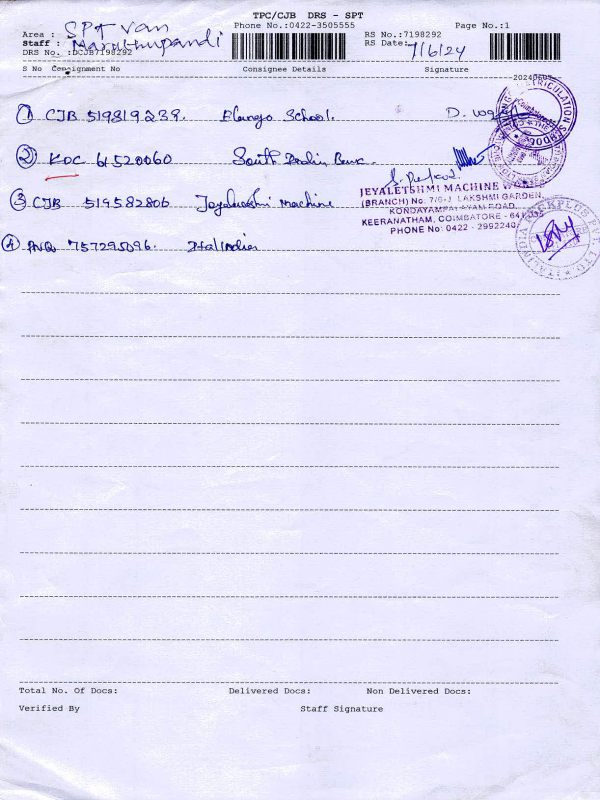 TPC/CJB DRS - SPT
Phone No.:0422-3505555 Page No.:1
Area : SPT Van RS No.:7198292
Staff : Maruthupandi RS Date: 7/6/24
DRS No. :DCJB7198292
S No Consignment No Consignee Details Signature
① CJB 519819239. Elango School. D.
② KDC 61520060 South Indian Bank.
③ CJB 519582806 Jeyalakshmi Machine
JEYALETSHMI MACHINE WORKS
(BRANCH) No: 7/6-J LAKSHMI GARDEN,
KONDAYAMPALAYAM ROAD,
KEERANATHAM, COIMBATORE - 641 035
PHONE No: 0422 - 2992240
④ 757295096. Ital India
Total No. Of Docs: Delivered Docs: Non Delivered Docs:
Verified By Staff Signature